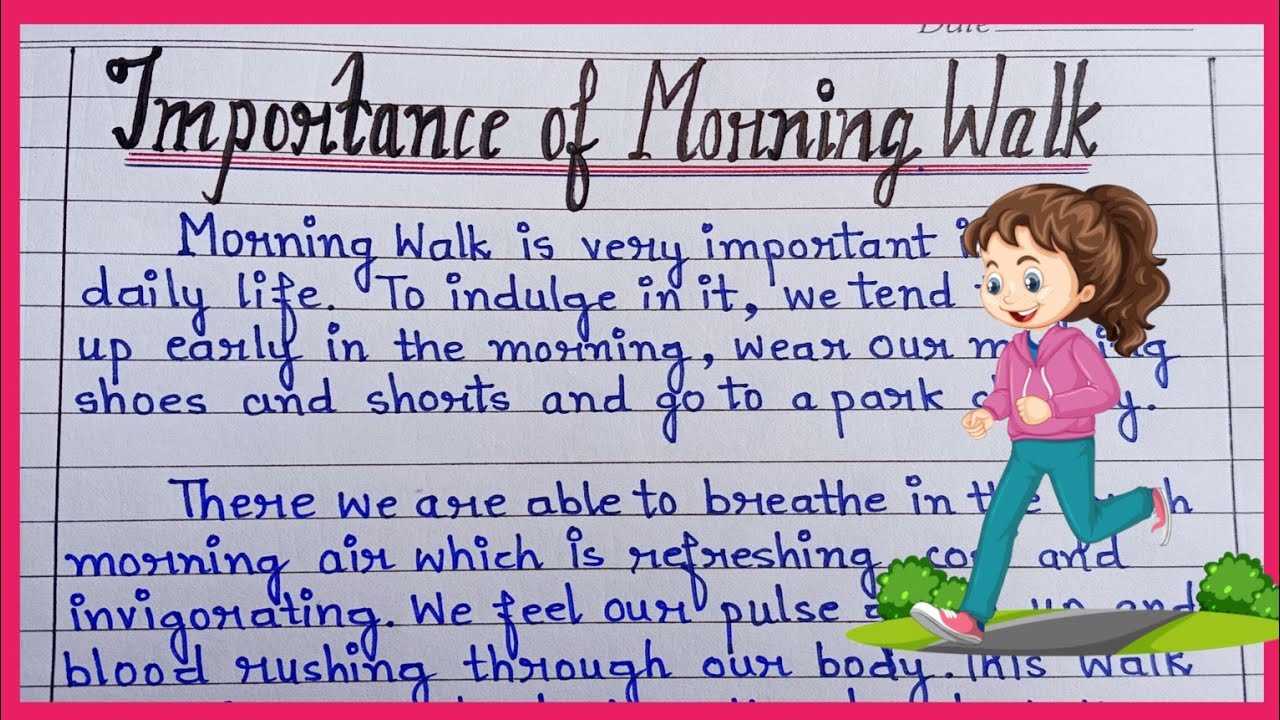 Date
Importance of Morning Walk
Morning Walk is very important
daily life. To indulge in it, we tend
up early in the morning, wear our
shoes and shorts and go to a park
There we are able to breathe in the
morning air which is refreshing, and
invigorating. We feel our pulse up and
blood rushing through our body. This walk